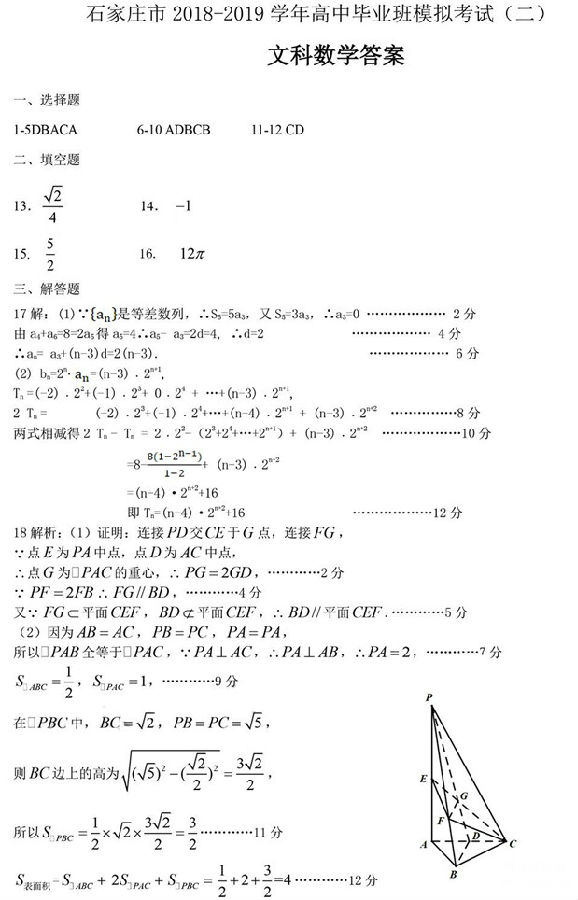 石家庄市 2018-2019 学年高中毕业班模拟考试（二）
文科数学答案
一、选择题
1-5DBACA 6-10 ADBCB 11-12 CD
二、填空题
13. √2/4 14. −1
15. 5/2 16. 12π
三、解答题
17 解：(1)∵{aₙ}是等差数列，∴S₅=5a₃，又S₅=3a₃，∴a₃=0 ……………… 2 分
由 a₄+a₆=8=2a₅得 a₅=4∴a₅− a₃=2d=4，∴d=2 ……………… 4 分
∴aₙ= a₃+(n−3)d=2(n−3). ……………… 6 分
(2) bₙ=2ⁿ·aₙ=(n−3)．2ⁿ⁺¹，
Tₙ=(−2)．2²+(−1)．2³+ 0．2⁴ + …+(n−3)．2ⁿ⁺¹，
2 Tₙ= (−2)．2³+(−1)．2⁴+…+(n−4)．2ⁿ⁺¹ + (n−3)．2ⁿ⁺² ……………8 分
两式相减得 2 Tₙ − Tₙ = 2．2²−（2³+2⁴+…+2ⁿ⁺¹）+ (n−3)．2ⁿ⁺² ………………10 分
=8−8(1−2ⁿ⁻¹)/(1−2)+ (n−3)．2ⁿ⁺²
=(n−4)·2ⁿ⁺²+16
即 Tₙ=(n−4)·2ⁿ⁺²+16 ………………12 分
18 解析：（1）证明：连接PD交CE于G点，连接FG，
∵点E为PA中点，点D为AC中点，
∴点G为□PAC的重心，∴PG=2GD，…………2 分
∵ PF=2FB∴FG//BD，…………4 分
又∵ FG⊂平面CEF，BD⊄平面CEF，∴BD//平面CEF．…………5 分
（2）因为AB=AC，PB=PC，PA=PA，
所以□PAB全等于□PAC，∵PA⊥AC，∴PA⊥AB，∴PA=2，…………7 分
S□ABC=1/2，S□PAC=1，…………9 分
在□PBC中，BC=√2，PB=PC=√5，
则BC边上的高为√((√5)²−(√2/2)²)=3√2/2，
所以S□PBC=1/2×√2×3√2/2=3/2…………11 分
S表面积=S□ABC+2S□PAC+S□PBC=1/2+2+3/2=4…………12 分
P
E
G
F
A
D
C
B